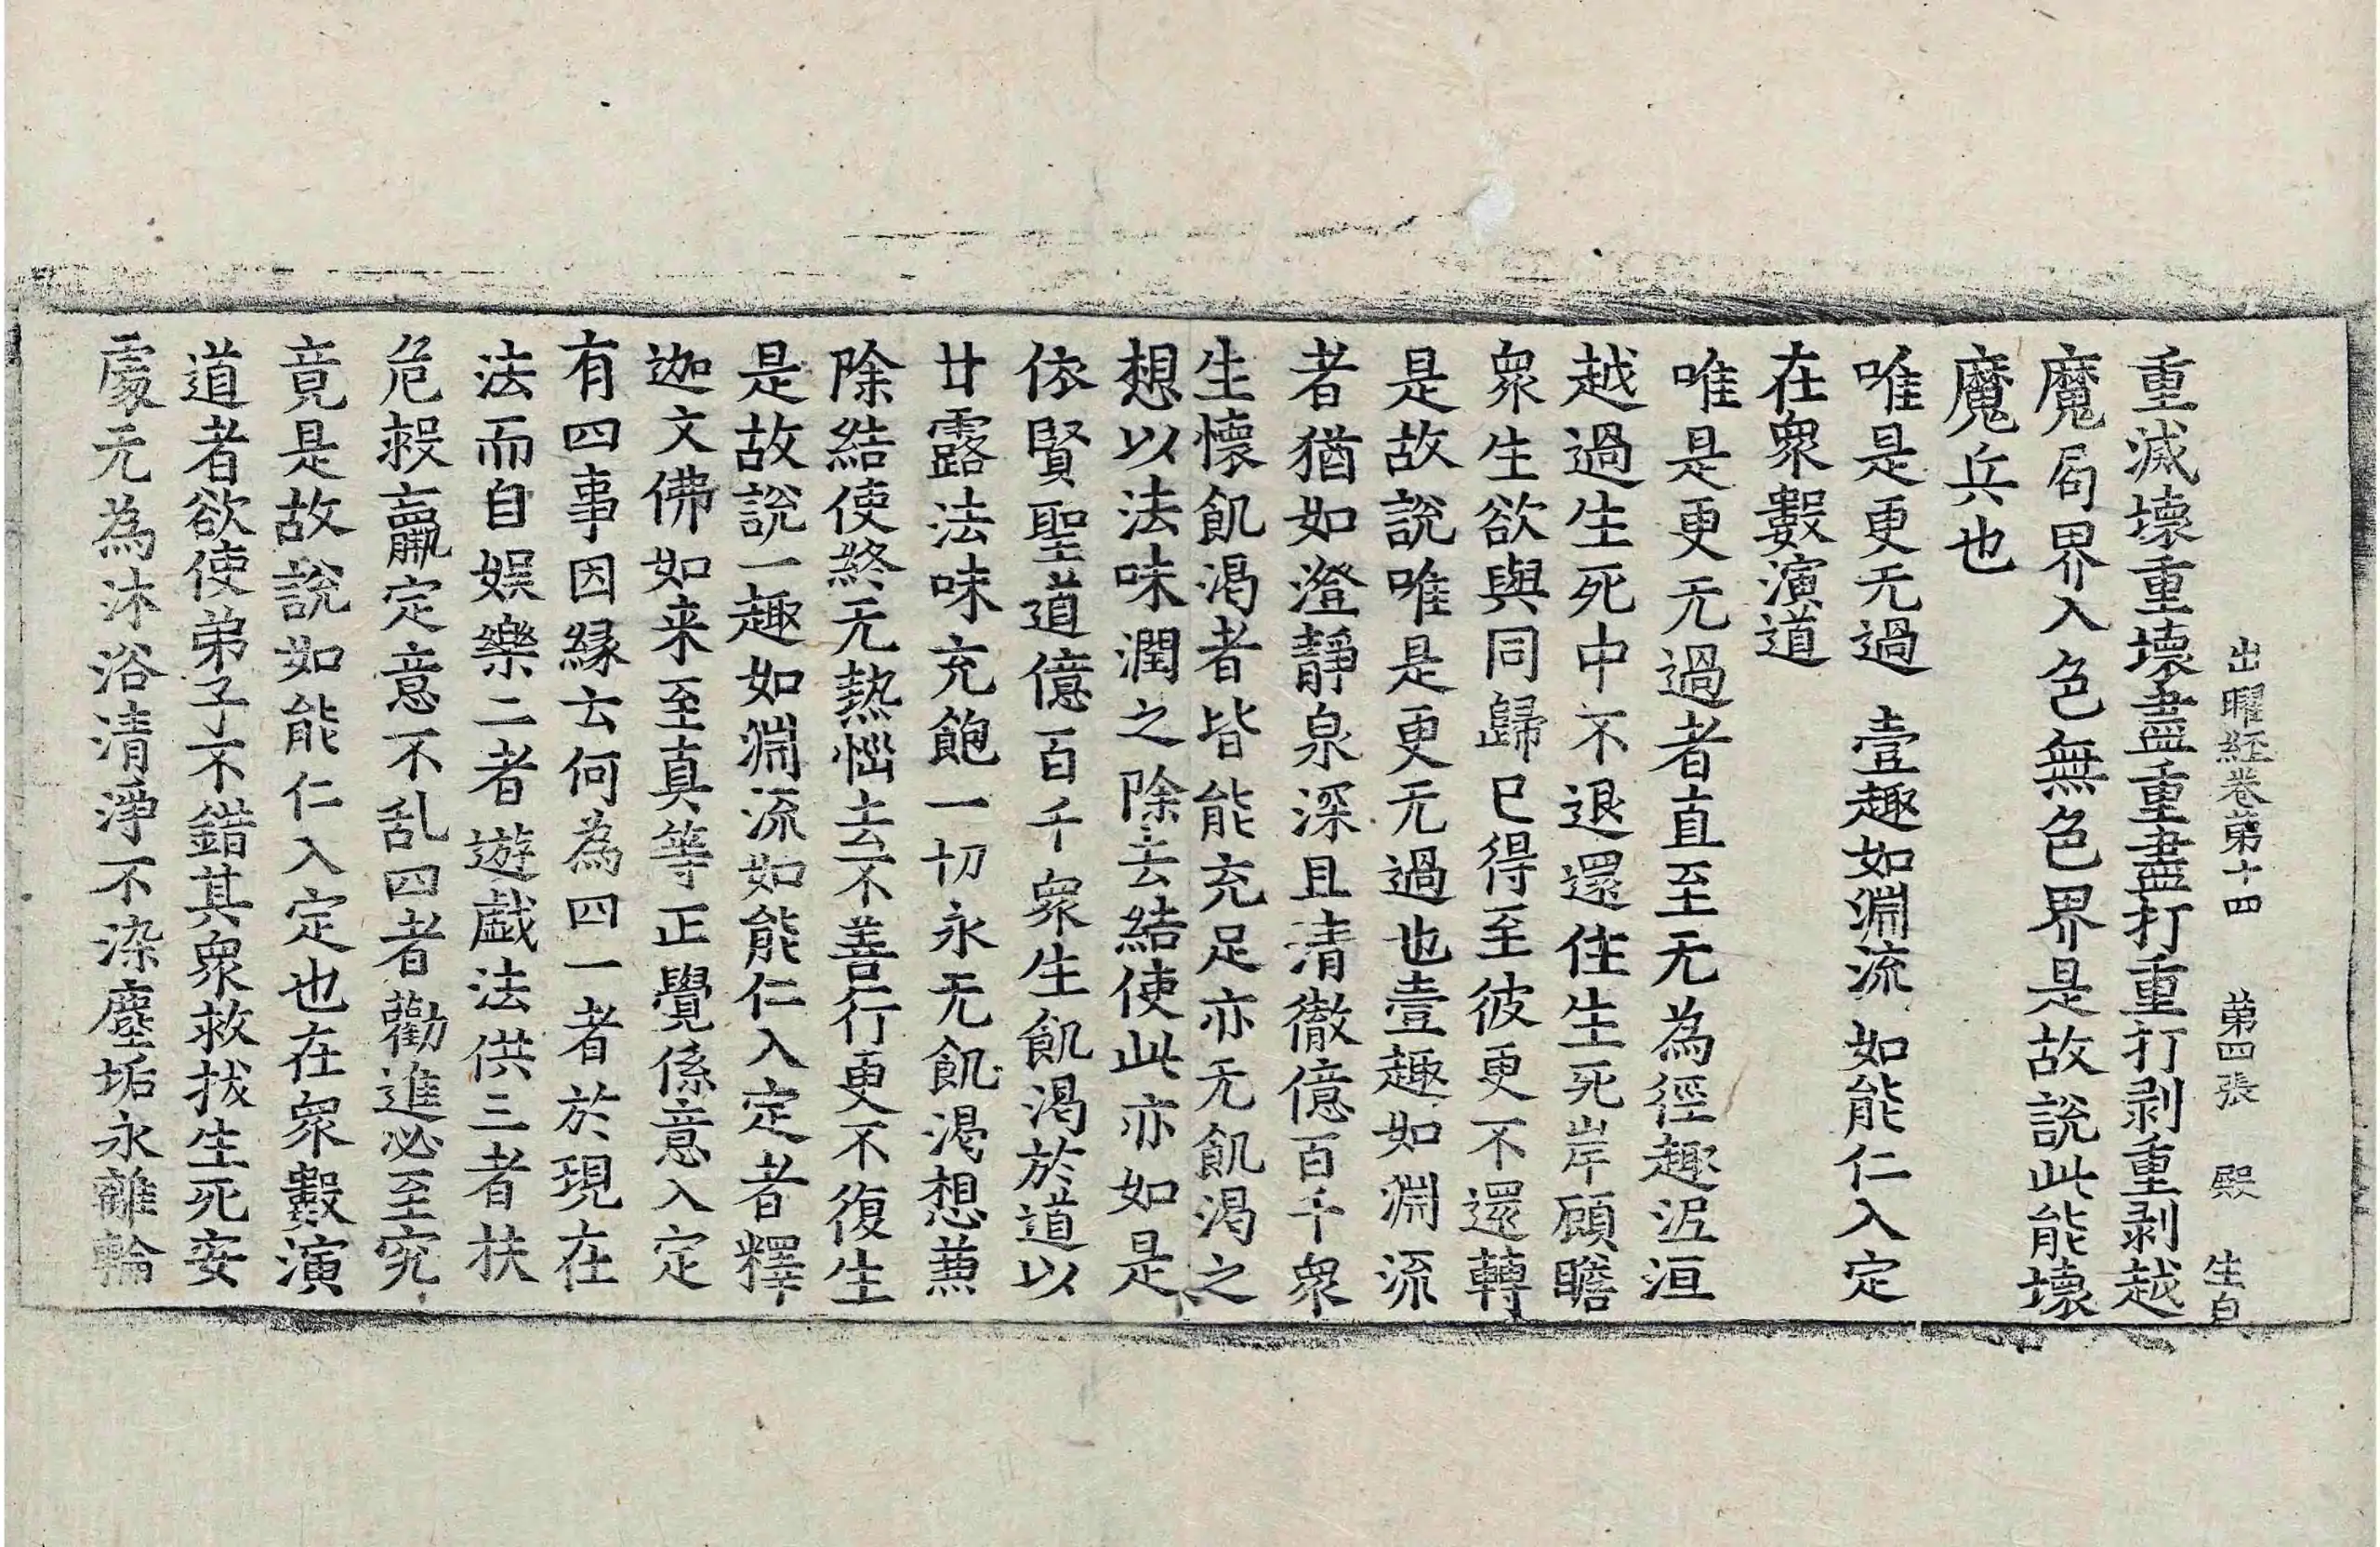 出曜經卷第十四　第四張　殿　生白
重滅壞重壞盡重盡打重打剥重剥越
魔局界入色無色界是故說此能壞
魔兵也
唯是更无過　壹趣如淵流　如能仁入定
在衆數演道
唯是更无過者直至无為徑趣泥洹
越過生死中不退還住生死岸顧瞻
衆生欲與同歸已得至彼更不還轉
是故說唯是更无過也壹趣如淵流
者猶如澄靜泉深且清徹億百千衆
生懷飢渴者皆能充足亦无飢渴之
想以法味潤之除去結使此亦如是
依賢聖道億百千衆生飢渴於道以
甘露法味充飽一切永无飢渴想兼
除結使終无熱惱去不善行更不復生
是故說一趣如淵流如能仁入定者釋
迦文佛如来至真等正覺係意入定
有四事因緣云何為四一者於現在
法而自娱樂二者遊戲法供三者扶
危救羸定意不乱四者勸進必至究
竟是故說如能仁入定也在衆數演
道者欲使弟子不錯其衆救拔生死安
處无為沐浴清淨不染塵垢永離輪